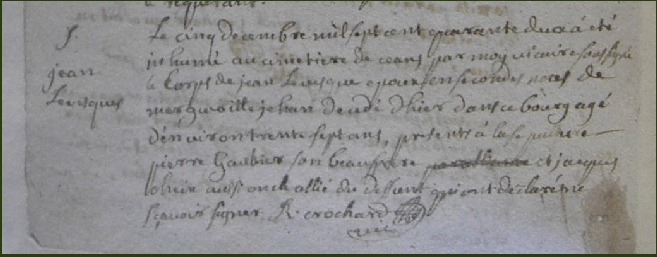 requerant.
S.
jean
Levesque
Le cinq decembre mil sept cent quarante deux a été
inhumé au cimetiere de ceans par moy vicaire soussigné
le corps de jean Levesque epoux en secondes noces de
jehan decedé d'hier dans ce bourg agé
d'environ trente sept ans, presents à la sepulture
pierre Gaubier son beaufrere et jacques
aussi oncle allié du deffunt qui ont declaré ne
sçavoir signer. R. crochard
vic